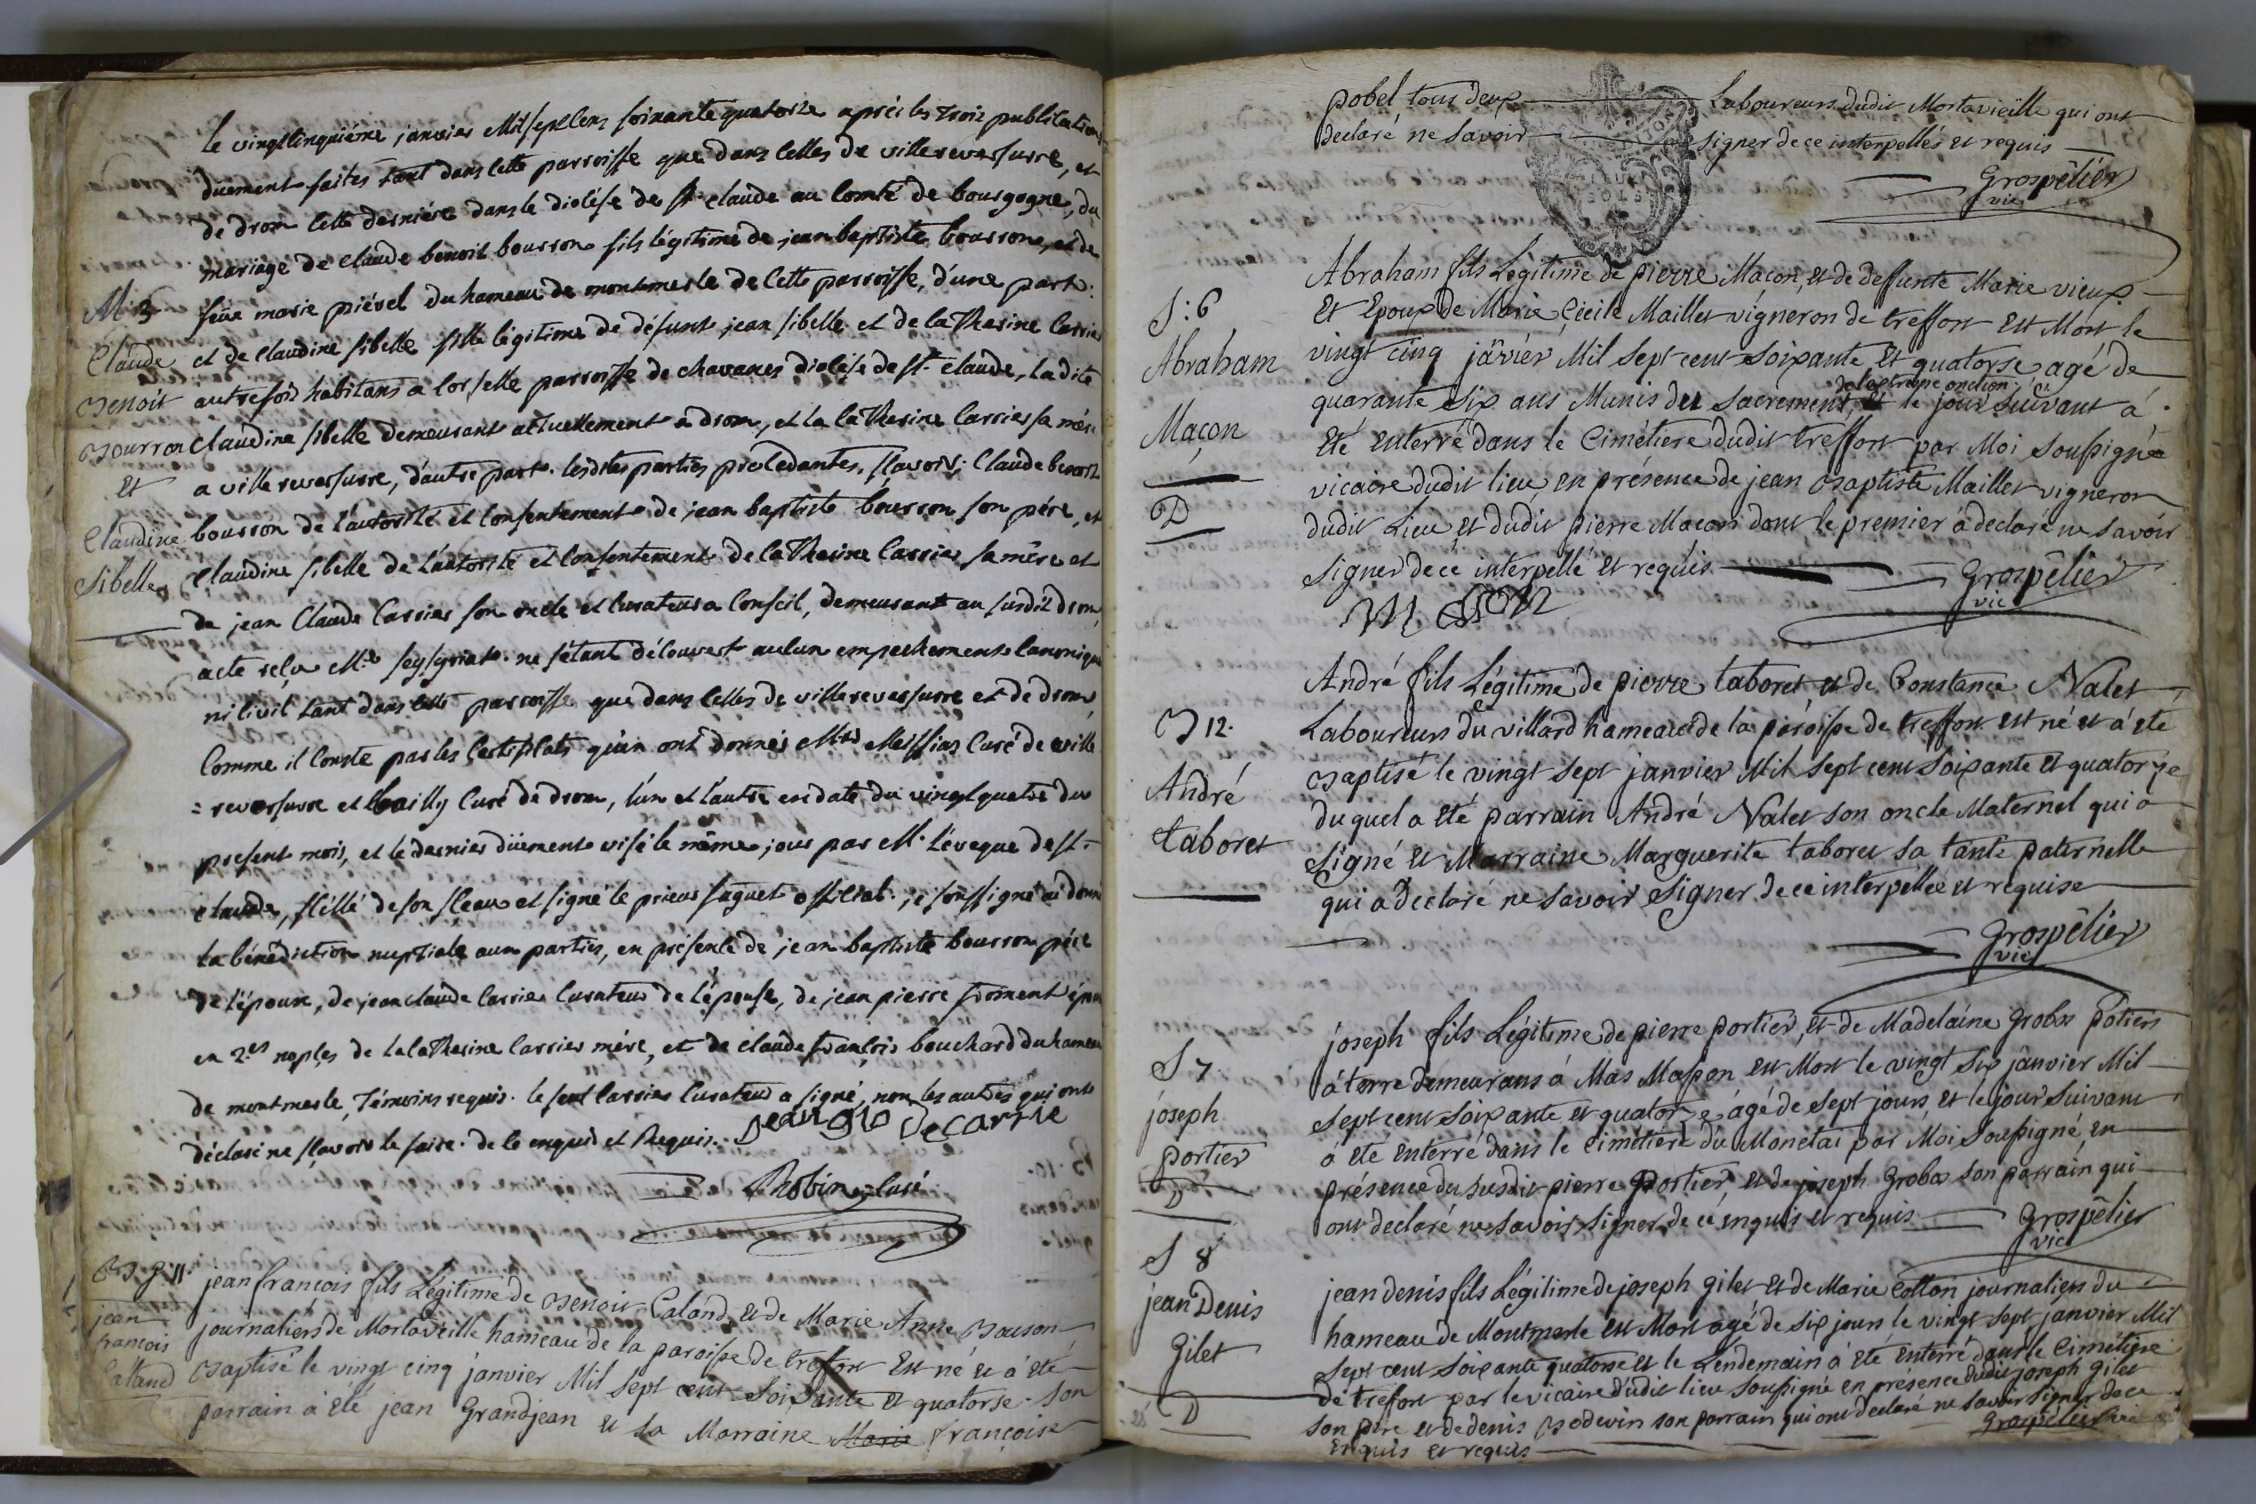 le vingtcinquiéme janvier Mil sept cens soixante quatorze aprés les trois publications
duement faites tant dans cette parroisse que dans celles de villereversurre, et
de drom cette derniére dans le diocése de st claude au comté de bourgogne, du
mariage de claude benoit bourron fils légitime de jean baptiste bourron, et de
M 3
feüe marie piével du hameau de montmerle de cette parroisse, d'une part.
Claude
et de claudine sibelle fille légitime de défunt jean sibelle et de catherine carrier
Benoit
autrefois habitans a corselle parroisse de chavanes diocése de st claude, la dite
Bourron
claudine sibelle demeurant actuellement a drom, et la catherine carrier sa mére
Et
a villereversurre, d'autre part. lesdites parties procedantes, sçavoir; claude benoit
Claudine
bourron de l'autorité et consentement de jean baptiste bourron son pére, et
Sibelle
claudine sibelle de l'autorité et consentement de catherine carrier sa mére et
de jean claude carrier son oncle et curateur a conseil, demeurant au susdit drom,
acte reçu Me seysyriat. ne s'étant découvert aucun empechement canonique
ni civil tant dans cette parroisse que dans celles de villereversurre et de drom,
comme il conste par les certificats qu'en ont donnés Mrs Meissiaz curé de ville
=reversurre et bailly curé de drom, l'un et l'autre en date du vingtquatre du
present mois, et le dernier düement visé le même jour par Mr l'éveque de st
claude, scéllé de son sceau et signé le prieur official. je soussigné ai donné
la bénédiction nuptiale aux parties, en présence de jean baptiste bourron pére
de l'époux, de jean claude carrier curateur de l'épouse, de jean pierre froment époux
en 2es noples de la catherine carrier mére, et de claude françois bouchard du hameau
de montmerle, témoins requis. le seul carrier curateur a signé, non les autres qui ont
déclaré ne sçavoir le faire. de ce enquis et Requis. Jean glo de carrie
Robin curé
B 11.
jean françois fils Légitime de Benoit Caland, et de Marie Anne
jean
journaliers de Mortaveille hameau de la paroisse de treffort Est né et à été
françois
Baptisé le vingt cinq janvier Mil sept cent soixante et quatorse son
Calland
parrain à été jean Grandjean et sa Marraine Marie françoise
pobel tous deux Laboureurs dudit Mortavieille qui ont
declaré ne savoir signer de ce interpellés et requis
Grospêlier
vic
S: 6
Abraham
Maçon
D
Abraham fils Légitime de pierre Macon, et de deffunte Marie vieux
et Epoux de Marie Cécile Maillet vigneron de treffort Est Mort le
vingt cinq jãvier Mil sept cent soixante et quatorse agé de
quarante six ans Munis du sacrement de l'extreme onction, et le jour suivant à
Eté enterré dans le Cimétiere dudit treffort par Moi soussigné
vicaire dudit lieu en présence de jean Baptiste Maillet vigneron
dudit Lieu et dudit pierre Macon dont le premier à declaré ne savoir
signer de ce interpellé et requis Grospêlier
vic
B 12.
André
taboret
André fils Légitime de pierre taboret et de Constance Nalet
Laboureurs du villard hameau de la paroisse de treffort est né et à été
Baptisé le vingt sept janvier Mil sept cent soixante et quatorze
duquel a été parrain André Nalet son oncle Maternel qui a
signé et Marraine Marguerite taboret sa tante paternelle
qui a declaré ne savoir signer de ce interpellée et requise
Grospêlier
vic
S 7
joseph
portier
D
joseph fils Légitime de pierre portier, et de Madelaine Grobas potiers
à terre demeurans à Mas Masson est Mort le vingt six janvier Mil
sept cent soixante et quatorze, agé de sept jours et le jour suivant
à été enterré dans le cimétiere du Monetai par Moi soussigné, en
présence du susdit pierre portier, et de joseph Grobas son parrain qui
ont declaré ne savoir signer de ce enquis et requis Grospêlier
vic
S 8
jean Denis
Gilet
D
jean denis fils Légitime de joseph Gilet et de Marie Cotton journaliers du
hameau de Montmerle est Mort agé de six jours le vingt sept janvier Mil
sept cent soixante quatorse et le Lendemain à été enterré dans le Cimétiére
de trefort par le vicaire dudit lieu soussigné en présence dudit joseph Gilet
son pére et de denis Bodevin son parrain qui ont declaré ne savoir signer de ce
enquis et requis Grospêlier vic